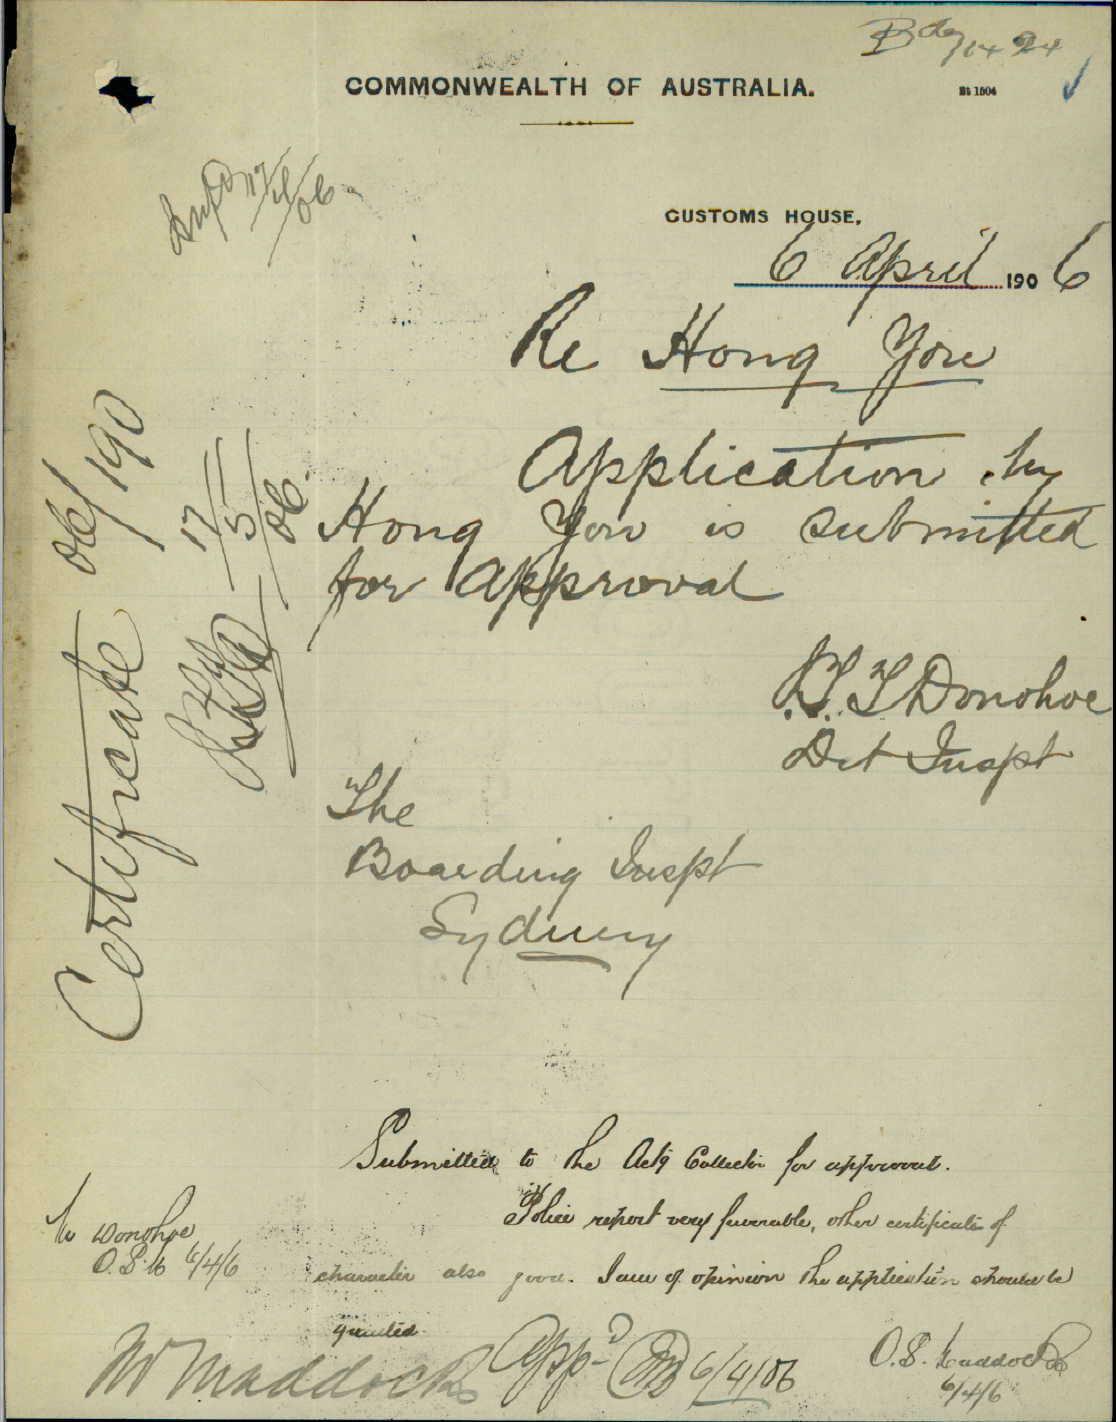 Bdg 14 24
COMMONWEALTH OF AUSTRALIA.
Bs 1504
CUSTOMS HOUSE,
6 April 1906
Re Hong You
Application by
Hong You is submitted
for approval
J. T. T Donohoe
Det Inspt
The
Boarding Inspt
Sydney
Certificate 06/190
17/5/06
17/4/06
Submitted to the Actg Collector for approval.
Police report very favorable, other certificate of
character also good. I am of opinion the application should be
granted
O. S. Maddocks
6/4/6
Mr Donohoe
O. S. M 6/4/6
Mr Maddocks
Appd 6/4/06